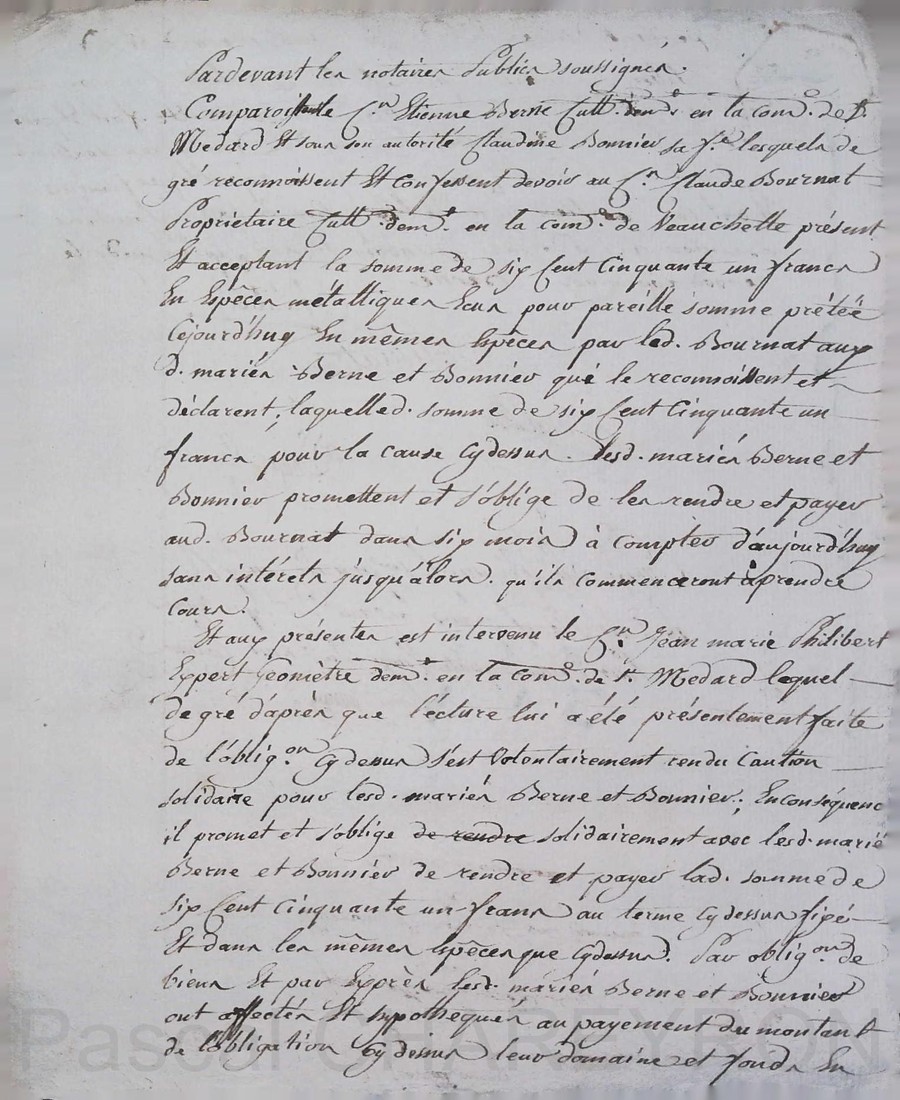 Pardevant les notaires Publics soussignés.
Comparoissent le C.en Etienne Berne Cult. dem.t en la com.e de St.
Medard Et sous son autorité Claudine Bonnier sa f.e lesquels de
gré reconnoissent Et Confessent devoir au C.en Claude Bournat
Propriétaire Cult. dem.t en la com.e de Veauchette présent
Et acceptant la somme de six Cent Cinquante un francs
En Espêces métalliques Ecus pour pareille somme prêtée
Cejourd'huy En mêmes Espêces par led. Bournat aux
d. mariés Berne et Bonnier qui le reconnoissent et
déclarent, laquelle d. somme de six Cent Cinquante un
francs pour la cause Cydessus. Lesd. mariés Berne et
Bonnier promettent et s'oblige de les rendre et payer
aud. Bournat dans six mois à compter d'aujourd'huy
sans intérets jusqu'alors. qu'ils commenceront à prendre
cours.
Et aux présentes est intervenu le C.en Jean marie Philibert
Expert Géomètre dem.t en la com.e de St. Medard lequel
de gré d'après que l'écture lui a été présentement faite
de l'oblig.on Cydessus s'est Volontairement rendu Caution
solidaire pour lesd. mariés Berne et Bonnier; En conséquenc
il promet et s'oblige de rendre solidairement avec lesd. marié
Berne et Bonnier de rendre et payer lad. somme de
six Cent Cinquante un francs au terme Cydessus fixé
Et dans les mêmes Espêces que Cydessus. Par oblig.on de
biens Et par Exprès lesd. mariés Berne et Bonnier
ont affectés Et hypothequés au payement du montant
de l'obligation Cydessus leur domaine et fonds En